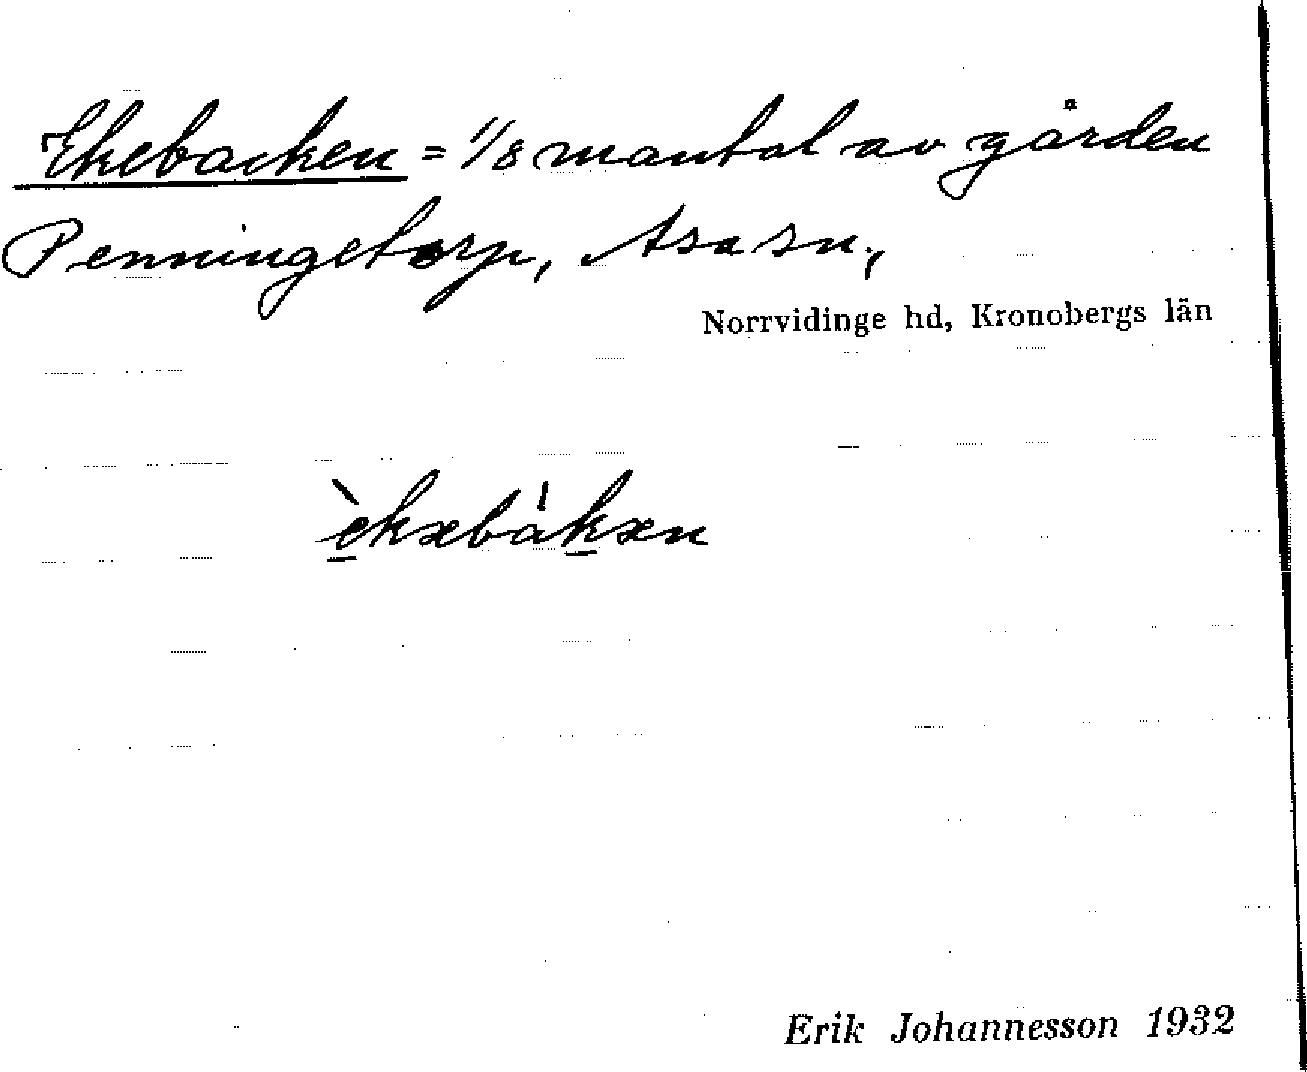 Ekebacken = 1/8 mantal av gården
Penningetorp, Asa sn.,
Norrvidinge hd, Kronobergs län
èkəbákən
Erik Johannesson 1932